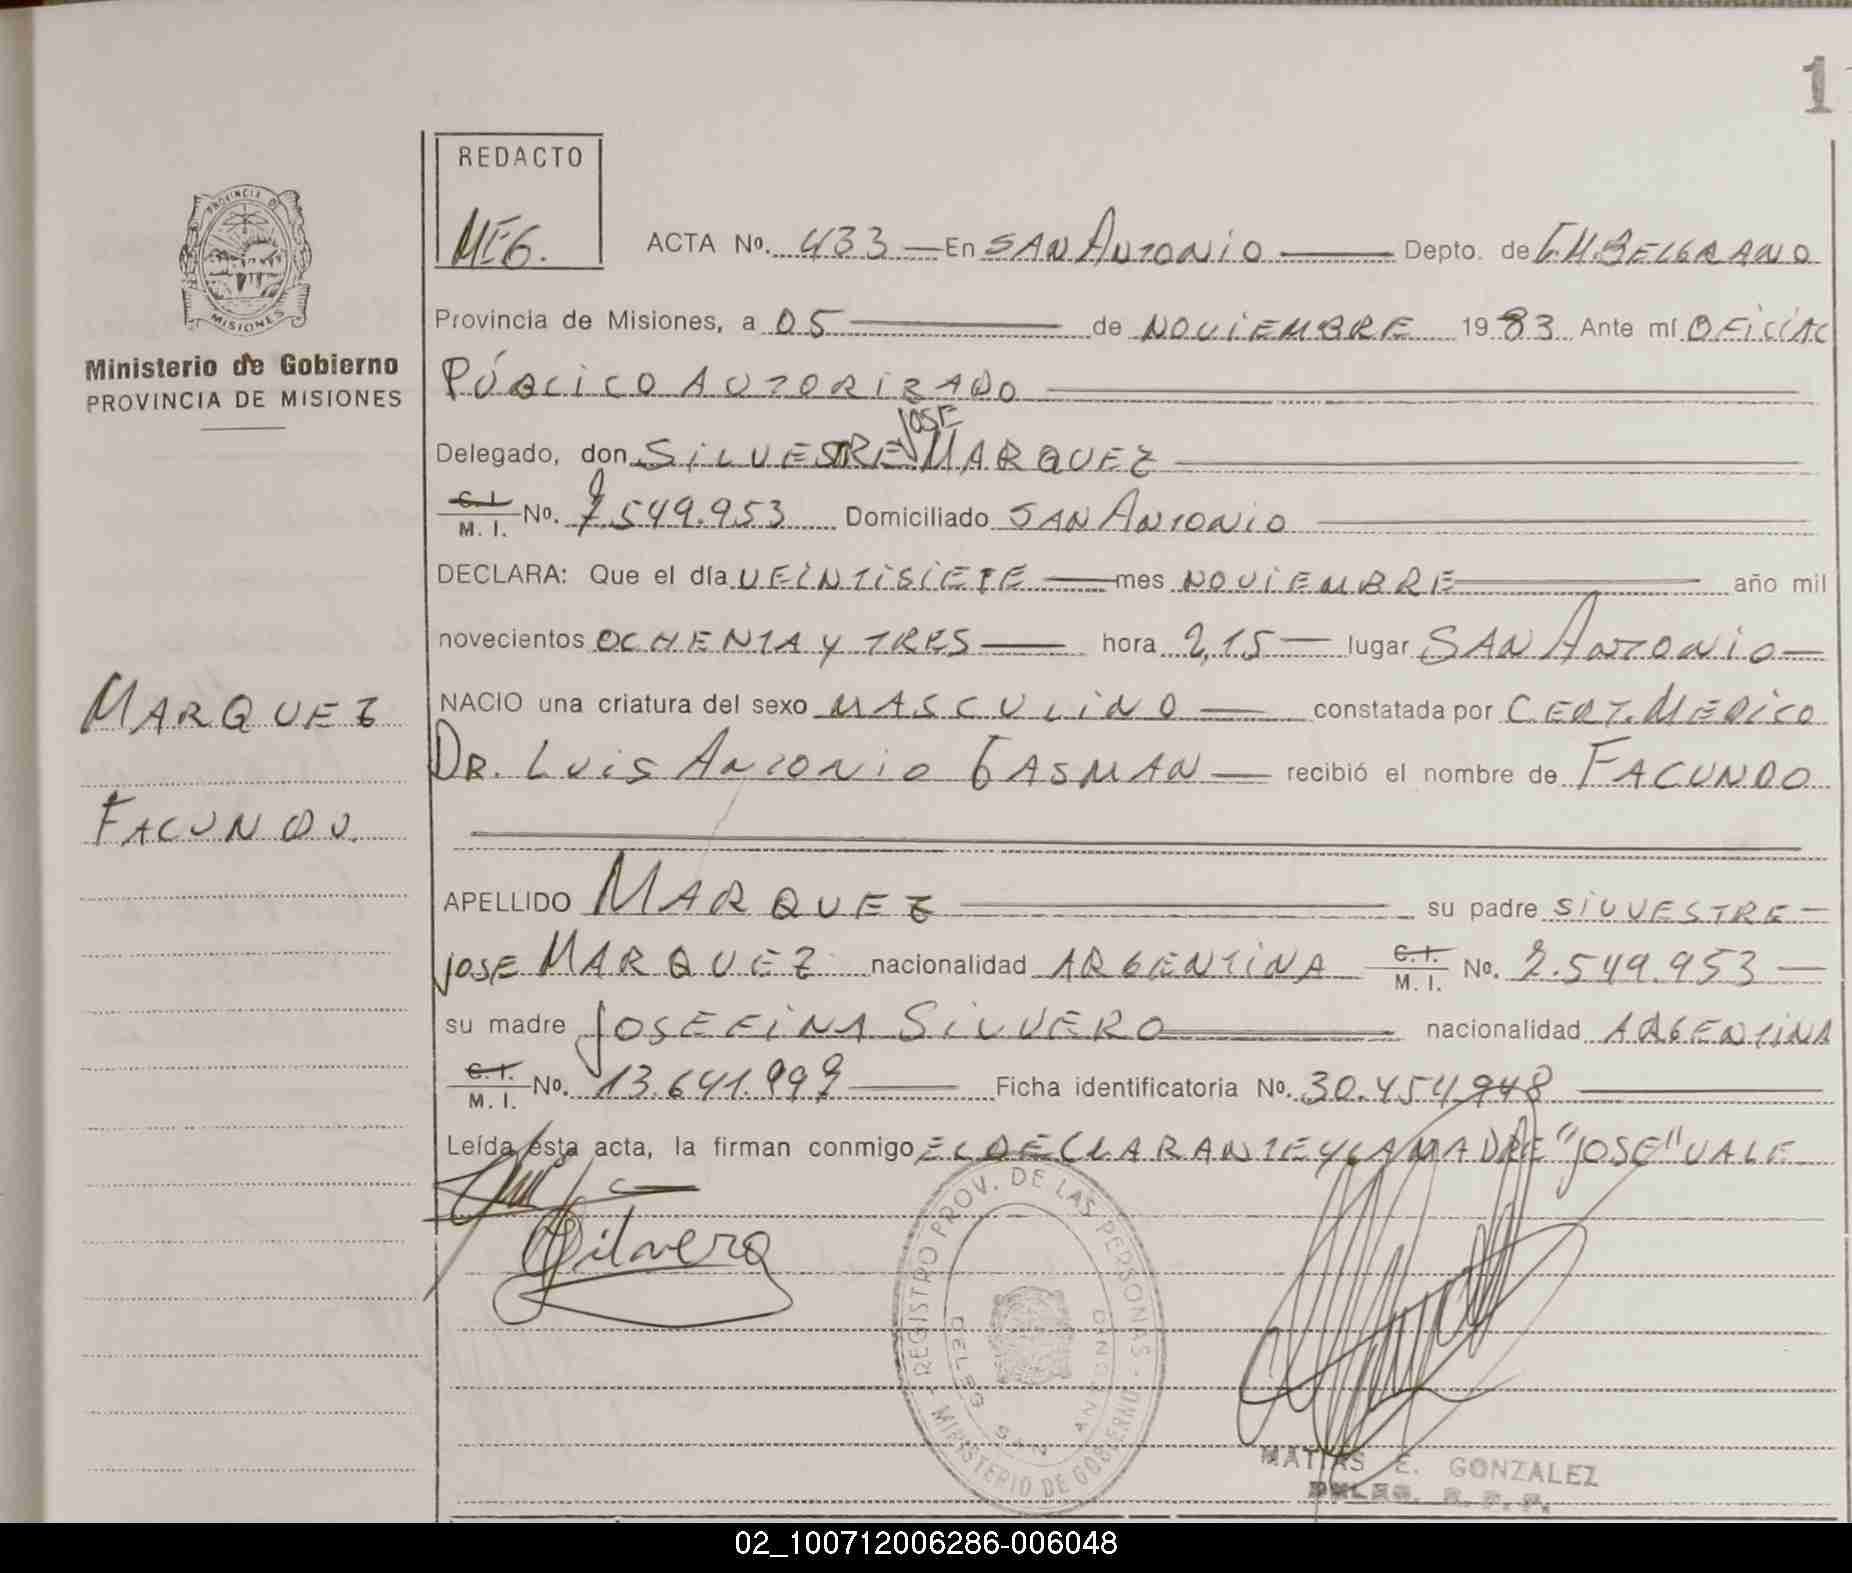 1
REDACTO
MEG.
PROVINCIA DE
MISIONES
Ministerio de Gobierno
PROVINCIA DE MISIONES
ACTA No. 433 — En SAN ANTONIO — Depto. de G.M.BELGRANO
Provincia de Misiones, a 05 — de NOVIEMBRE 1983 Ante mí OFICIAL
PÚBLICO AUTORIZADO
JOSE
Delegado, don SILVESTRE MARQUEZ
C. I.
M. I. No. 7.549.953 Domiciliado SAN ANTONIO
DECLARA: Que el día VEINTISIETE — mes NOVIEMBRE — año mil
novecientos OCHENTA Y TRES — hora 2,15 — lugar SAN ANTONIO —
MARQUEZ
NACIO una criatura del sexo MASCULINO — constatada por CERT. MEDICO
DR. LUIS ANTONIO GASMAN — recibió el nombre de FACUNDO
FACUNDO.
APELLIDO MARQUEZ — su padre SILVESTRE —
JOSE MARQUEZ nacionalidad ARGENTINA C. I.
M. I. No. 7.549.953 —
su madre JOSEFINA SILVERO — nacionalidad ARGENTINA
C. I.
M. I. No. 13.641.999 — Ficha identificatoria No. 30.454.948
Leída ésta acta, la firman conmigo EL DECLARANTE Y LA MADRE "JOSE" VALE
Silvero
REGISTRO PROV. DE LAS PERSONAS - MINISTERIO DE GOBIERNO
DELEG. SAN ANTONIO
MATIAS E. GONZALEZ
DELEG. R. P. P.
02_100712006286-006048